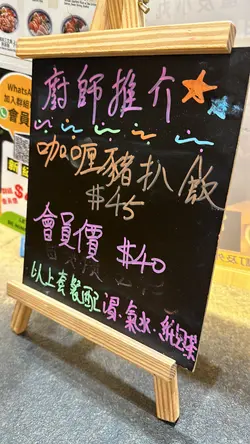 廚師推介
咖喱豬扒飯
$45
會員價 $40
以上套裝配湯、氣水、紙包裝
WhatsA
加入群組
會員